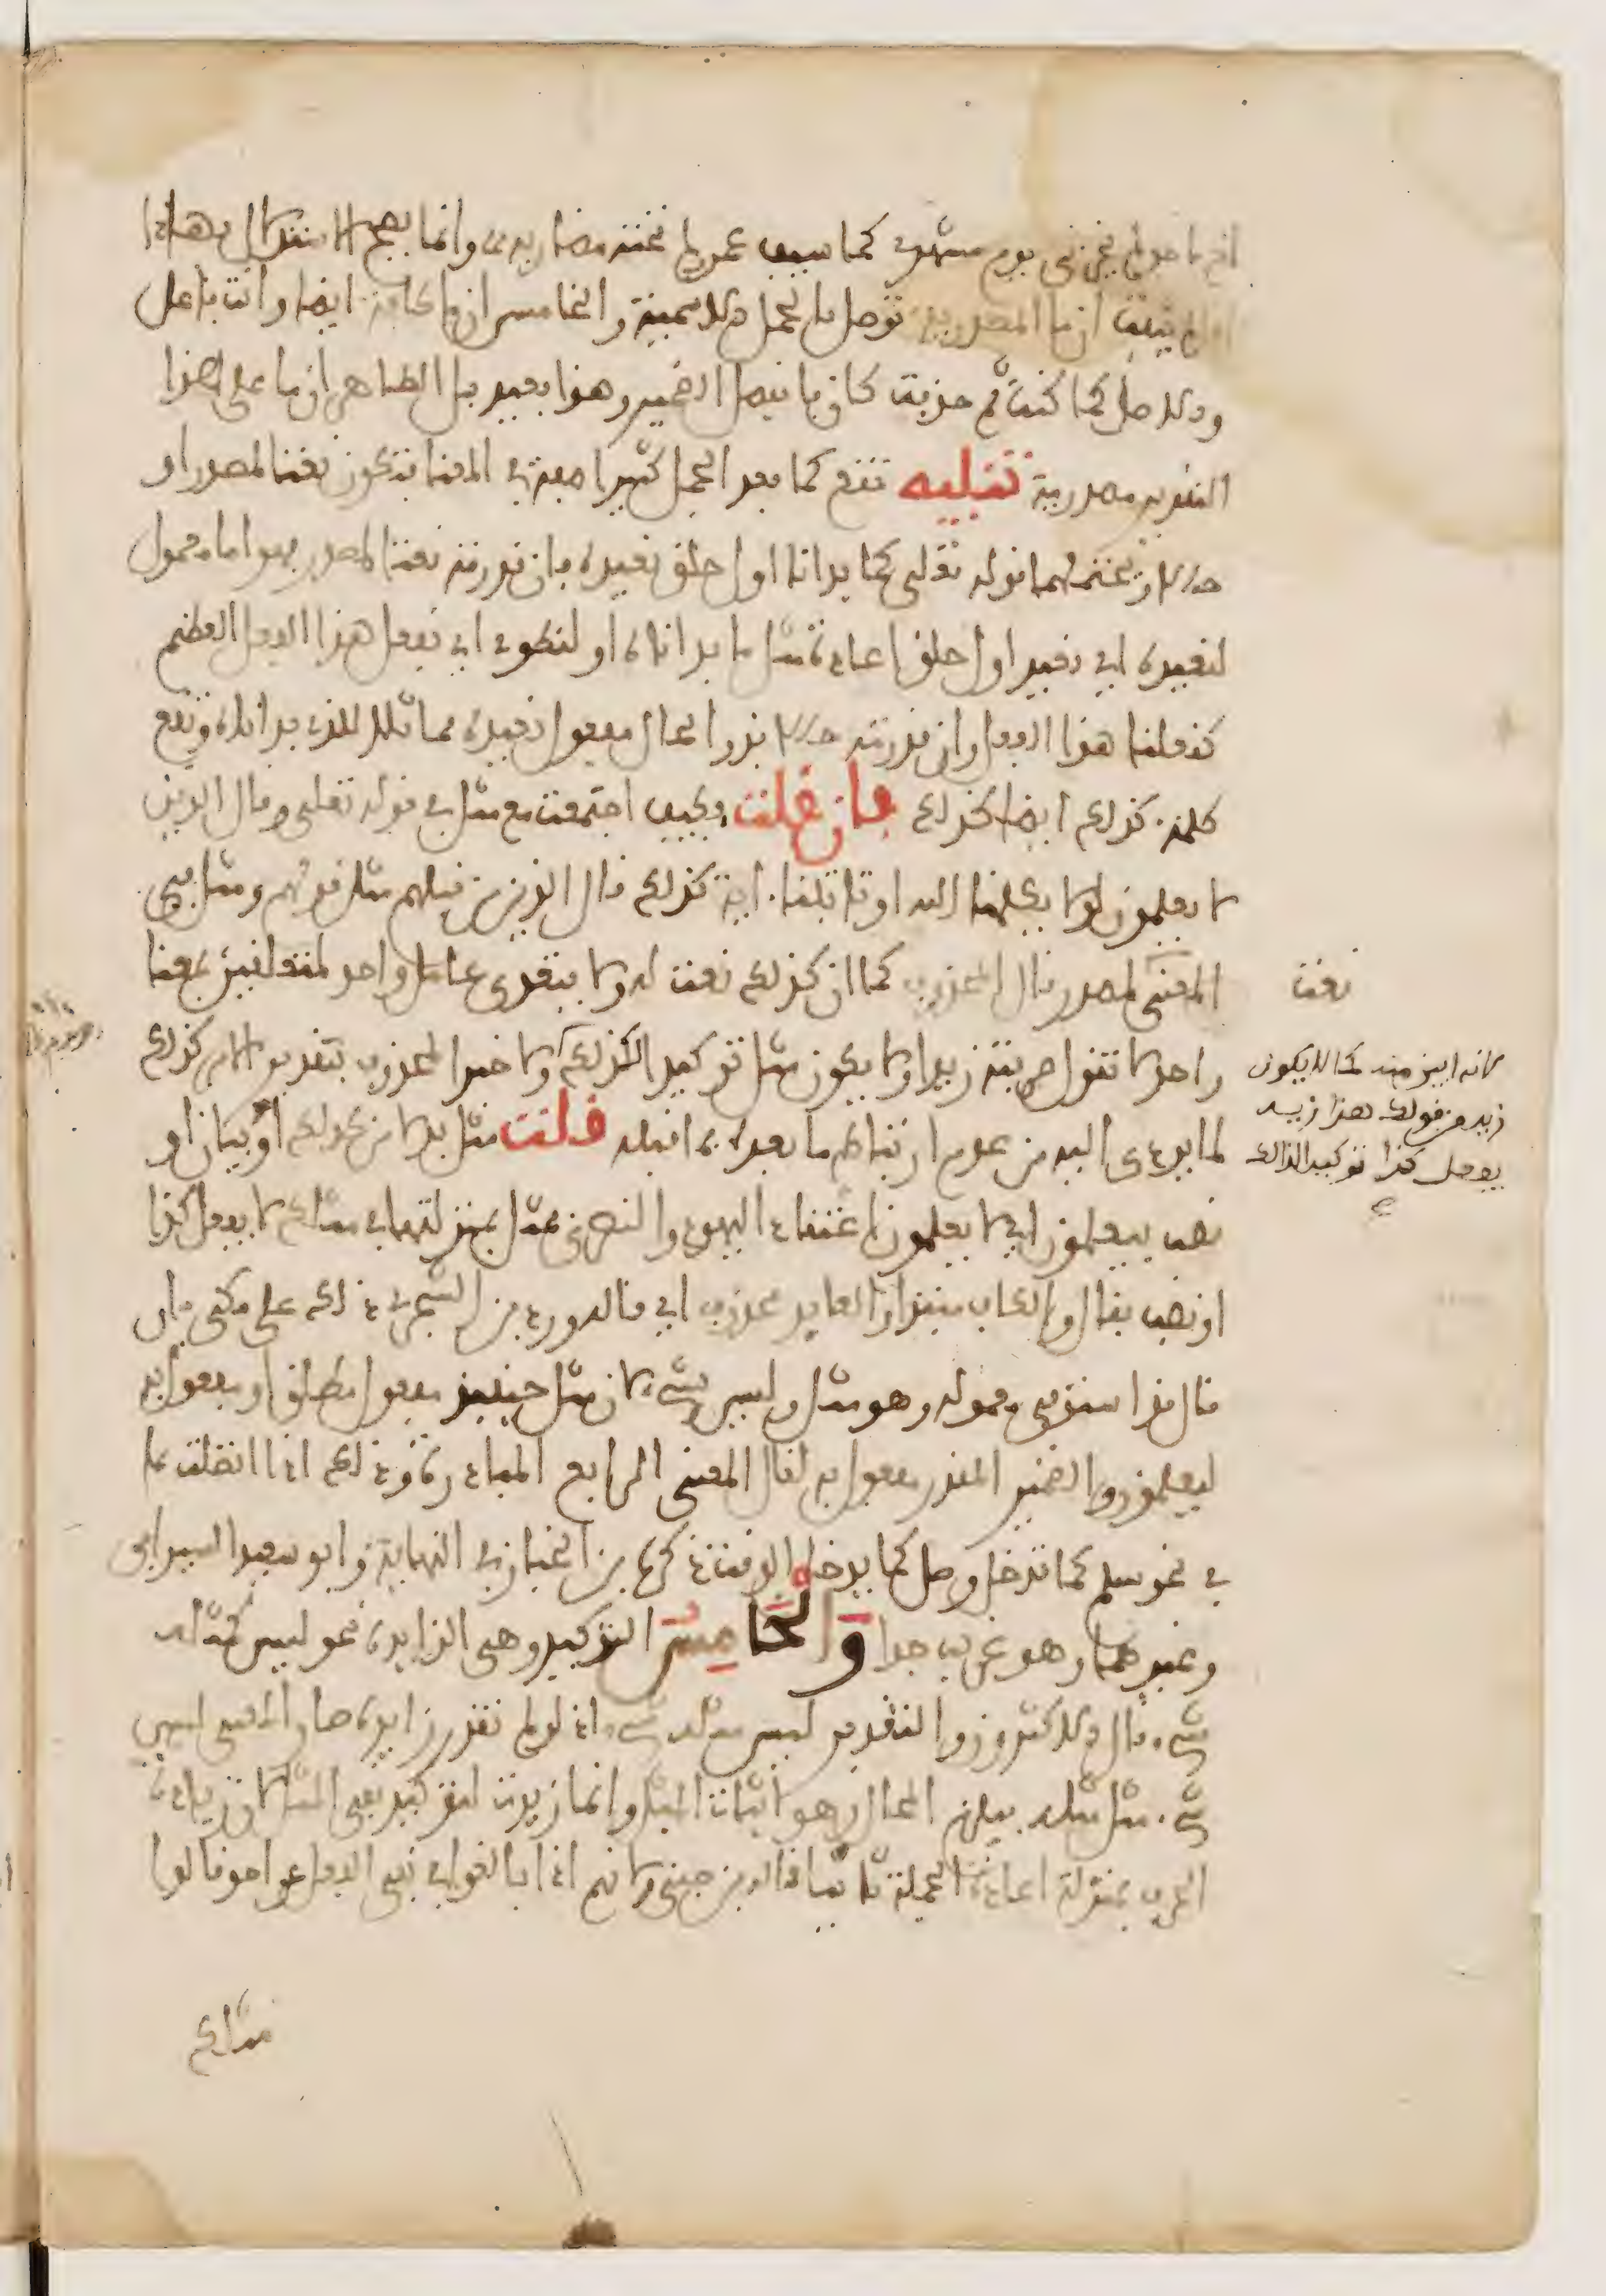 اخ ماجد لم يخزني يوم مشهد كما سيف عمرو لم تخنه مضاربه وانما يصح الاستدلال بهاذا
اذا لم يثبت ان ما المصدرية توصل بالجملة الاسمية والخامس ان ما كافة ايضا وانت فاعل
والاصل كما كنت ثم حذفت كان فانفصل الضمير وهذا بعيد بل الظاهر ان ما على هذا
التقدير مصدرية تنبيه تقع كما بعد الجمل كثيرا صفة في المعنا فتكون نعتا لمصدر او
حالا ويحتملهما قوله تعلى كما بدانا اول خلق نعيده فان قدرته نعتا لمصدر فهو اما معمول
لنعيده اي نعيد اول خلق اعادة مثل ما بداناه او لنطوي اي نفعل هذا الفعل العظيم
كفعلنا هذا الفعل وان قدرته حالا فذو الحال مفعول نعيده مماثلا للذي بداناه وتقع
كلمة كذلك ايضا كذلك فان قلت فكيف اجتمعت مع مثل في قوله تعلى وقال الذين
لا يعلمون لولا يكلمنا الله او تاتينا اية كذلك قال الذين من قبلهم مثل قولهم ومثل في
المعنى لمصدر قال المحذوف كما ان كذلك نعت له ولا يتعدى عامل واحد لمتعلقين بمعنا
واحد لا تقول ضربته زيدا ولا يكون مثل توكيدا لكذلك ولا خبرا لمحذوف بتقدير الامر كذلك
لما يودي اليه من عدم ارتباط ما بعده بما قبله قلت مثل بدلا من كذلك او بيان او
نصب بيعلمون اي لا يعلمون اعتقاد اليهود والنصرى فمثل بمنزلتها في مثلك لا يفعل كذا
او نصب بقال والكاف مبتدا والعايد محذوف اي قاله ورد بن الشجري ذلك على مكي بان
قال قد استوفى معموله وهو مثل وليس بشيء لان مثل حينيذ مفعول مطلق او مفعول به
ليعلمون والضمير المقدر مفعول به لقال المعنى الرابع المبادرة وذلك اذا اتصلت بما
في نحو سلم كما تدخل وصل كما يدخل الوقت ذكره بن الخباز في النهاية وابو سعيد السيرافي
وغيرهما وهو غريب جدا والخامس التوكيد وهي الزايدة نحو ليس كمثله
شيء قال الاكثرون والتقدير ليس مثله شيء اذ لو لم تقدر زايدة صار المعنى ليس
شيء مثل مثله فيلزم المحال وهو اثبات المثل وانما زيدت لتوكيد نفي المثل لان زيادة
الحرف بمنزلة اعادة الجملة ثانيا قاله بن جني ولانهم اذا بالغوا في نفي الفعل عن احد قالوا
مثلك
نعت
لانه ابين منه كما لا يكون
زيد من قولك هذا زيد
يفعل كذا توكيدا لذالك